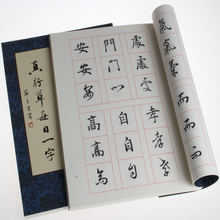 氣氣氣
而而而
處處處
門門門
安安安
孝孝孝
自自自
高高高
真行草每日一字